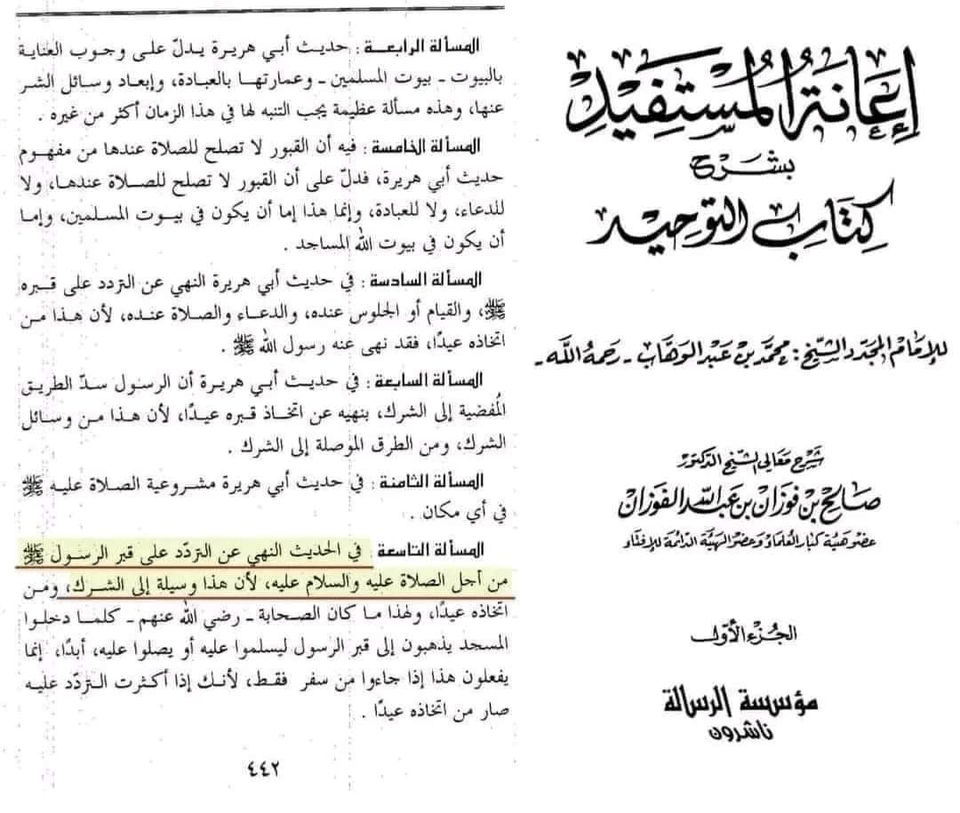 إعانة المستفيد
بشرح
كتاب التوحيد
للإمام المجدد الشيخ : محمد بن عبد الوهاب - رحمه الله -
شرح معالي الشيخ الدكتور
صالح بن فوزان بن عبد الله الفوزان
عضو هيئة كبار العلماء وعضو الهيئة الدائمة للإفتاء
الجزء الأول
مؤسسة الرسالة
ناشرون
المسألة الرابعة : حديث أبي هريرة يدلّ على وجوب العناية
بالبيوت - بيوت المسلمين - وعمارتها بالعبادة، وإبعاد وسائل الشر
عنها، وهذه مسألة عظيمة يجب التنبه لها في هذا الزمان أكثر من غيره .
المسألة الخامسة : فيه أن القبور لا تصلح للصلاة عندها من مفهوم
حديث أبي هريرة، فدلّ على أن القبور لا تصلح للصلاة عندها، ولا
للدعاء، ولا للعبادة، وإنما هذا إما أن يكون في بيوت المسلمين، وإما
أن يكون في بيوت الله المساجد .
المسألة السادسة : في حديث أبي هريرة النهي عن التردد على قبره
ﷺ، والقيام أو الجلوس عنده، والدعاء والصلاة عنده، لأن هذا من
اتخاذه عيدًا، فقد نهى عنه رسول الله ﷺ .
المسألة السابعة : في حديث أبي هريرة أن الرسول سدّ الطريق
المُفضية إلى الشرك، بنهيه عن اتخاذ قبره عيدًا، لأن هذا من وسائل
الشرك، ومن الطرق الموصلة إلى الشرك .
المسألة الثامنة : في حديث أبي هريرة مشروعية الصلاة عليه ﷺ
في أي مكان .
المسألة التاسعة : في الحديث النهي عن التردّد على قبر الرسول ﷺ
من أجل الصلاة عليه والسلام عليه، لأن هذا وسيلة إلى الشرك، ومن
اتخاذه عيدًا، ولهذا ما كان الصحابة - رضي الله عنهم - كلما دخلوا
المسجد يذهبون إلى قبر الرسول ليسلموا عليه أو يصلوا عليه، أبدًا، إنما
يفعلون هذا إذا جاءوا من سفر فقط، لأنك إذا أكثرت التردّد عليه
صار من اتخاذه عيدًا .
٤٤٢